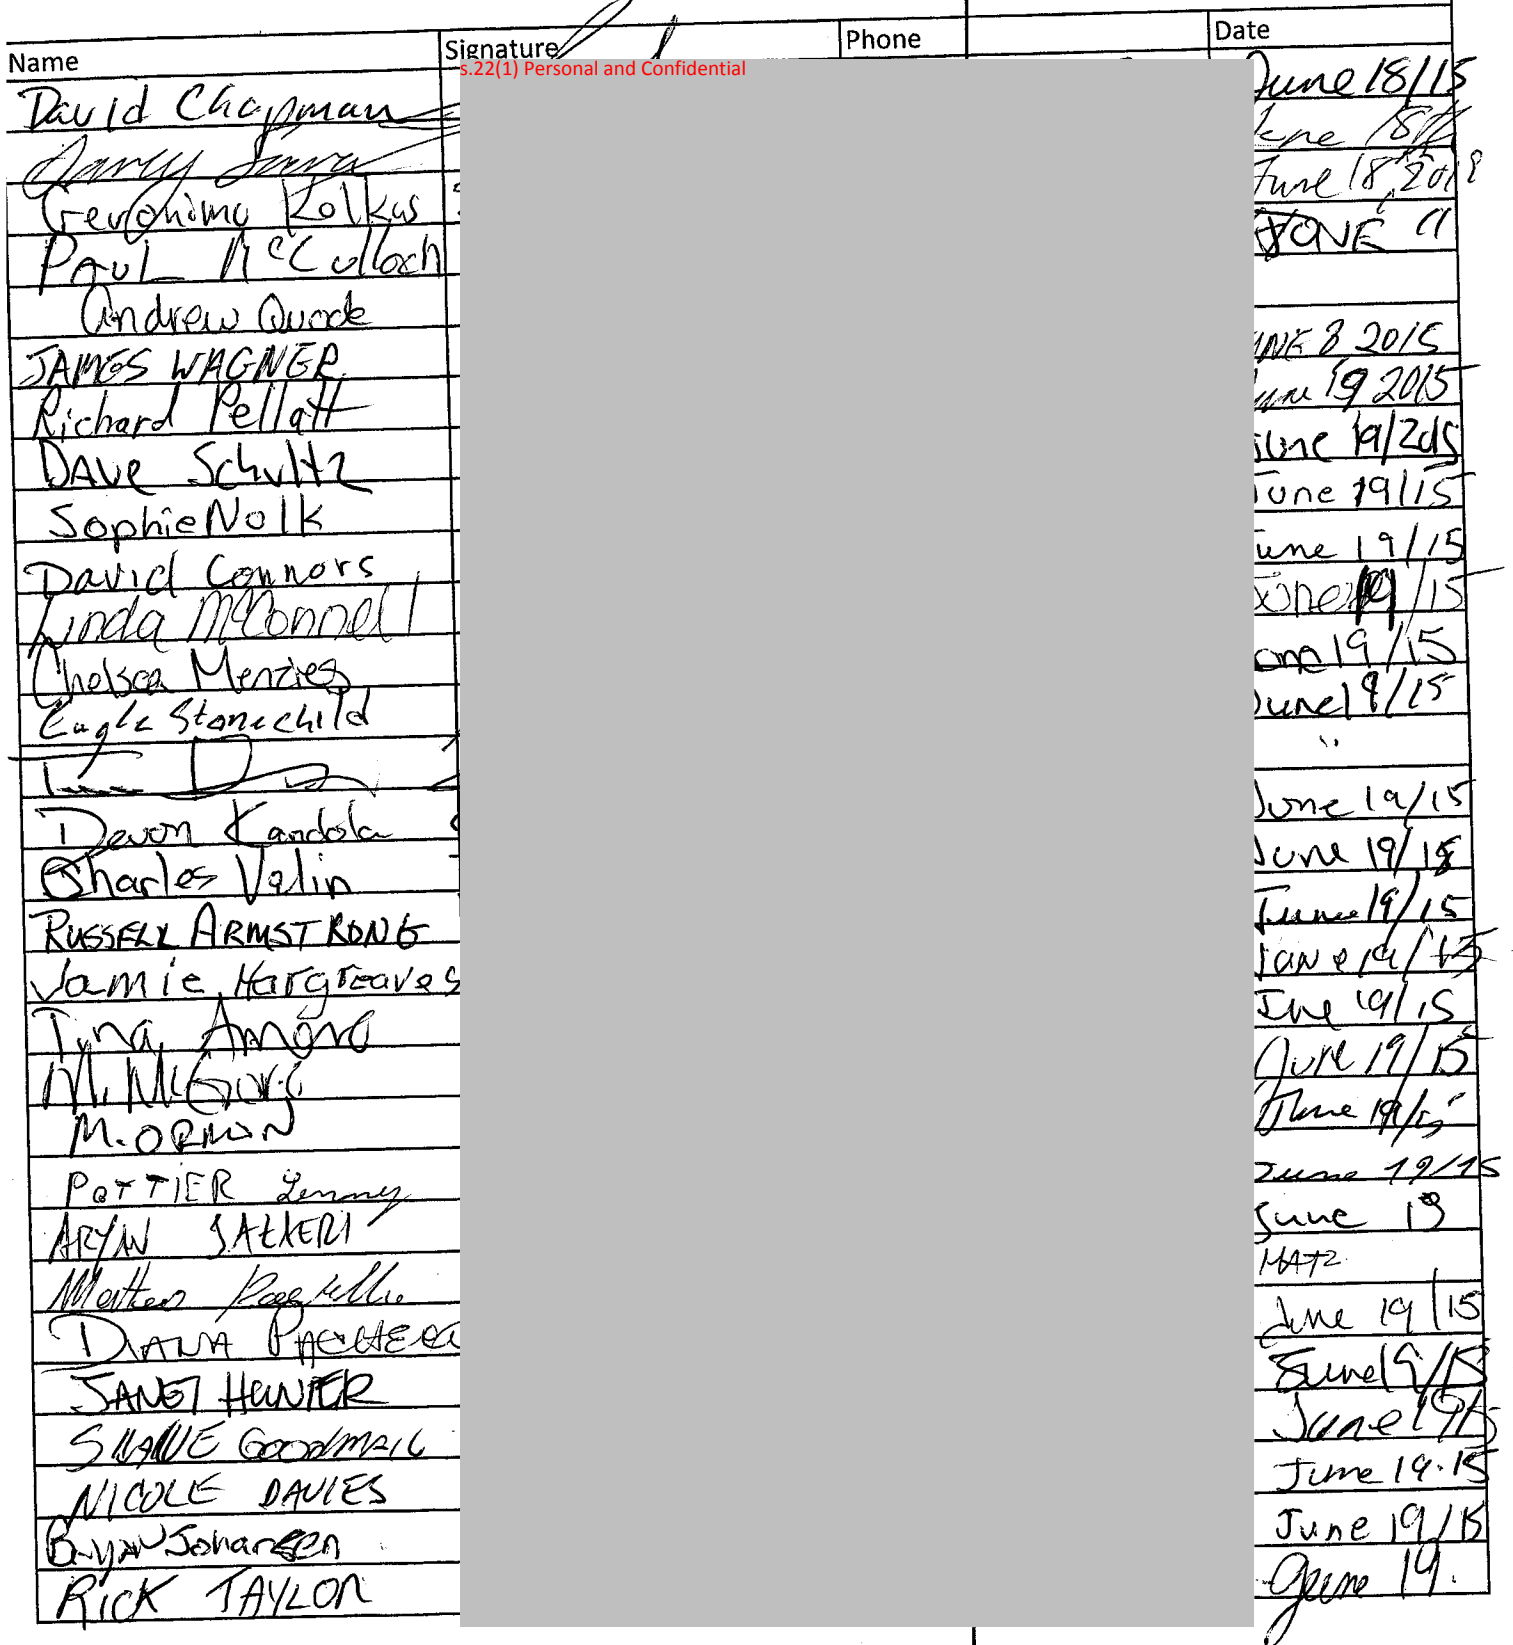 Name Signature Phone Date
s.22(1) Personal and Confidential
David Chapman June 18/15
June 18th
Geronimo Kolkas June 18, 2019
PAUL McCulloch JUNE "
Andrew Quade
JAMES WAGNER UNE 8 2015
Richard Pellatt June 19 2015
DAVE Schultz June 19/2015
Sophie Nolk June 19/15
David Connors June 19/15
Linda McConnell June 19/15
Chelsea Menzies June 19/15
Eagle Stonechild June 19/15
"
Devon Kandola June 19/15
Charles Valin June 19/15
RUSSELL ARMSTRONG June 19/15
Jamie Hargreaves June 19/15
Tina June 19/15
M. June 19/15
M. ORMAN June 19/15
POTTIER Lenny June 19/15
ARYAN June 19
June 19/15
DIANA PACHECO
JANET HUNTER June 19/15
SHANE June 19/15
NICOLE DAVIES June 19.15
Bryan Johansen June 19/15
RICK TAYLOR June 19.